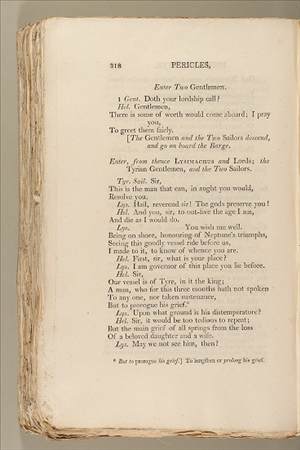 318 PERICLES,
Enter Two Gentlemen.
1 Gent. Doth your lordship call?
Hel. Gentlemen,
There is some of worth would come aboard; I pray
you,
To greet them fairly.
[The Gentlemen and the Two Sailors descend,
and go on board the Barge.
Enter, from thence LYSIMACHUS and Lords; the
Tyrian Gentlemen, and the Two Sailors.
Tyr. Sail. Sir,
This is the man that can, in aught you would,
Resolve you.
Lys. Hail, reverend sir! The gods preserve you!
Hel. And you, sir, to out-live the age I am,
And die as I would do.
Lys. You wish me well.
Being on shore, honouring of Neptune's triumphs,
Seeing this goodly vessel ride before us,
I made to it, to know of whence you are.
Hel. First, sir, what is your place?
Lys. I am governor of this place you lie before.
Hel. Sir,
Our vessel is of Tyre, in it the king;
A man, who for this three months hath not spoken
To any one, nor taken sustenance,
But to prorogue his grief.*
Lys. Upon what ground is his distemperature?
Hel. Sir, it would be too tedious to repeat;
But the main grief of all springs from the loss
Of a beloved daughter and a wife.
Lys. May we not see him, then?
* But to prorogue his grief.] To lengthen or prolong his grief.